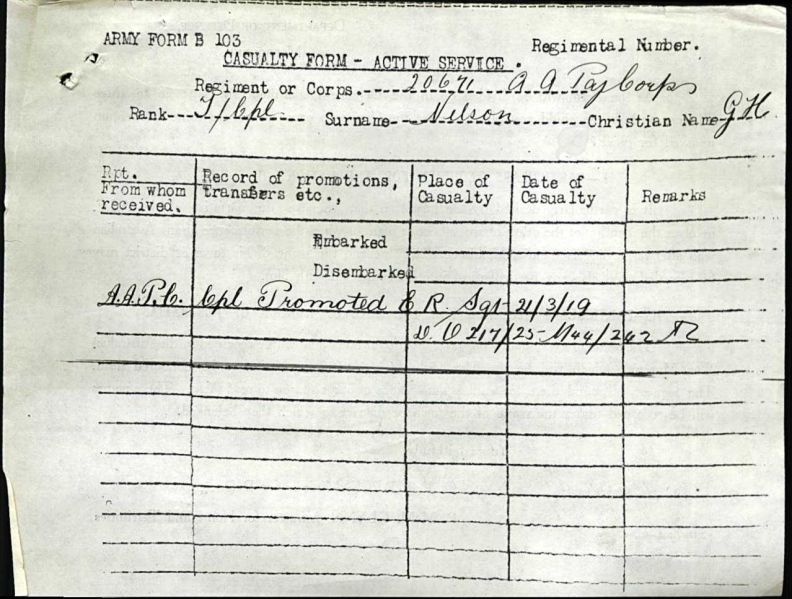 ARMY FORM B 103
Regimental Number.
CASUALTY FORM - ACTIVE SERVICE.
Regiment or Corps. 20671 A A Pay Corps
Rank T/Cpl Surname Nelson Christian Name G H
Rpt. From whom received.
Record of promotions, transfers etc.,
Place of Casualty
Date of Casualty
Remarks
Embarked
Disembarked
A.A.P.C. Cpl Promoted E R. Sgt 21/3/19
217/25